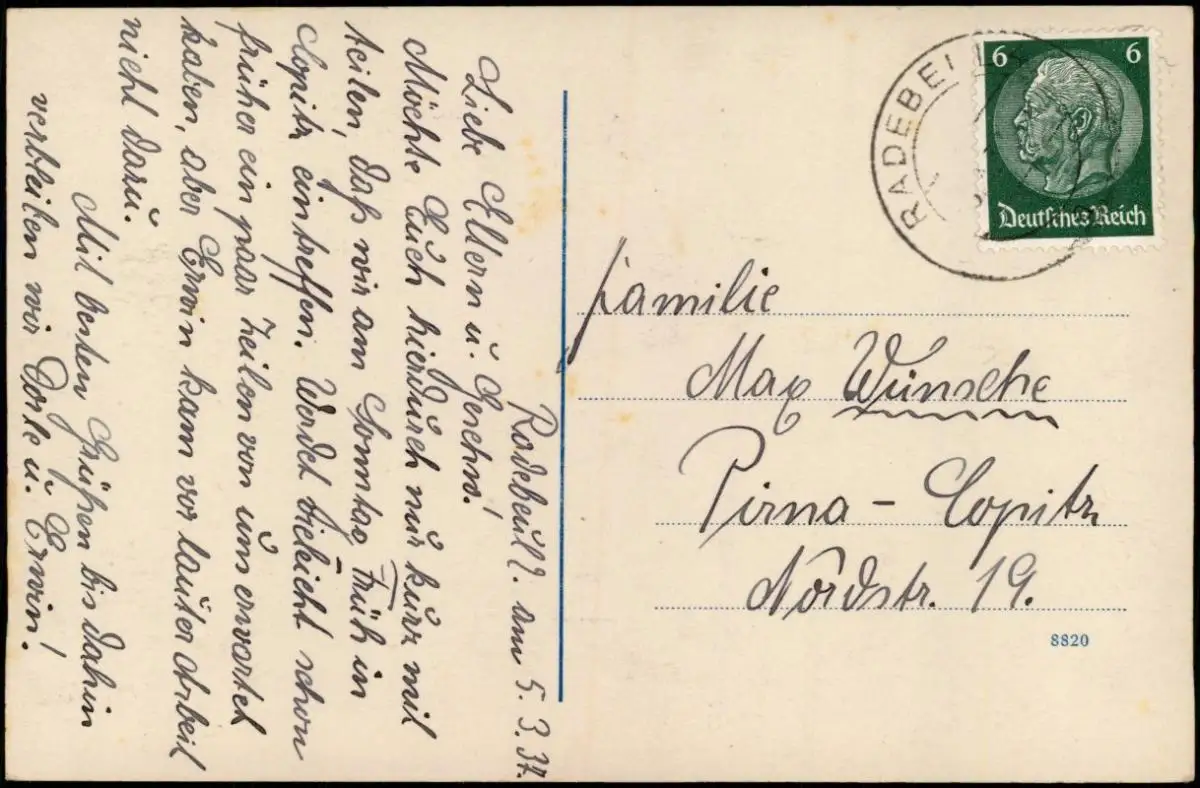 Radebeul 2. am 5. 3. 37.
Liebe Eltern u. Geschw.!
Möchte Euch hierdurch nur kurz mit
teilen, daß wir am Sonntag Früh in
Copitz eintreffen. Werdet vieleicht schon
früher ein paar Zeilen von uns erwartet
haben, aber Erwin kam vor lauter Arbeit
nicht dazu.
Mit besten Grüßen bis dahin
verbleiben wir Dorle u. Erwin!
RADEBEUL
6 6
Deutsches Reich
Familie
Max Wünsche
Pirna - Copitz
Nordstr. 19.
8820